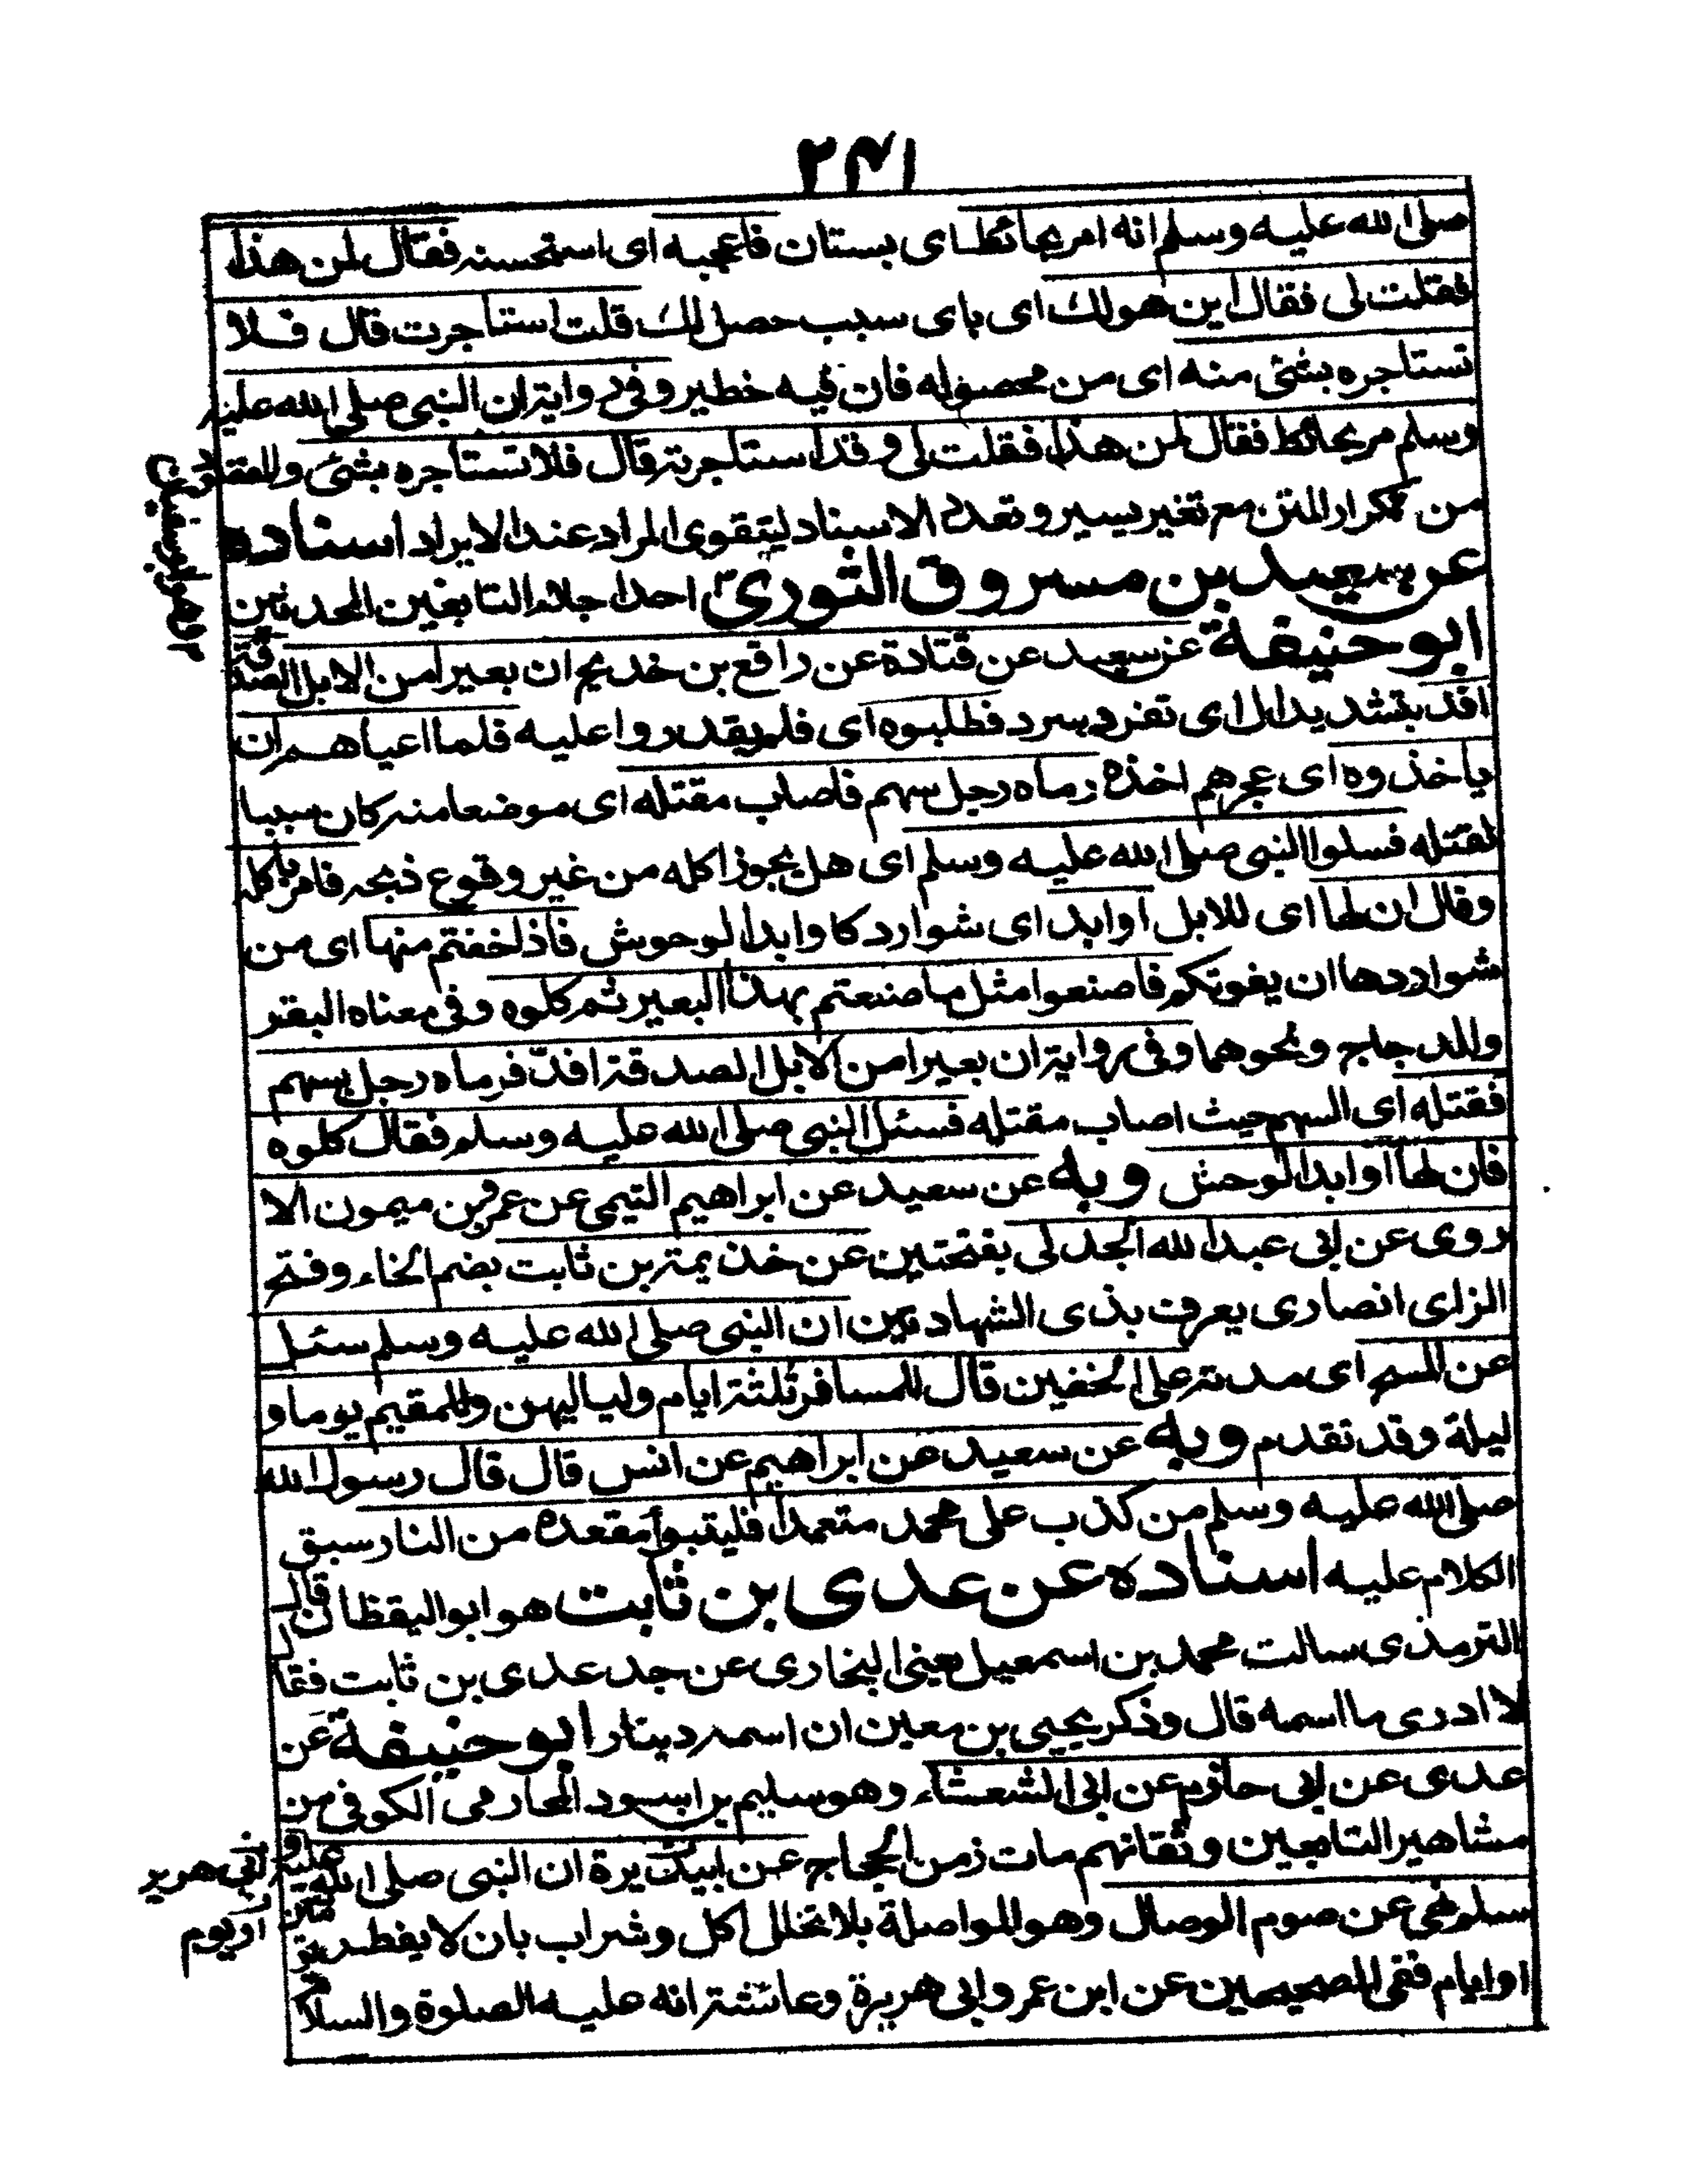 ٢٤١
صلى الله عليه وسلم انه امر بحائط اى بستان فاعجبه اى استحسنه فقال لمن هذا
فقلت لى فقال اين هو لك اى باى سبب حصل لك قلت استاجرت قال فلا
تستاجره بشئ منه اى من محصوله فان فيه خطير وفى رواية ان النبى صلى الله عليه
وسلم مر بحائط فقال لمن هذا فقلت لى وقد استاجرته قال فلا تستاجره بشئ والمقصود
من تكرار المتن مع تغير يسير وتعدد الاسناد ليتقوى المراد عند الايراد اسناده
عن سعيد بن مسروق الثورى احد اجلاء التابعين المحدثين
ابو حنيفة عن سعيد عن قتادة عن رافع بن خديج ان بعيرا من الابل الصدقة
افد بتشديد ال اى تفرد بسرد فطلبوه اى فلم يقدروا عليه فلما اعياهم ان
ياخذوه اى عجزهم اخذه رماه رجل سهم فاصاب مقتله اى موضعا منه كان سببا
لقتله فسلوا النبى صلى الله عليه وسلم اى هل يجوز اكله من غير وقوع ذبحه فامر باكله
وقال ان لها اى للابل اوابد اى شوارد كاوابد الوحوش فاذا خفتم منها اى من
شواردها ان يفوتكم فاصنعوا مثل ما صنعتم بهذا البعير ثم كلوه وفى معناه البقر
والدجاج ونحوهما وفى رواية ان بعيرا من الابل الصدقة افدّ فرماه رجل بسهم
فقتله اى السهم حيث اصاب مقتله فسئل النبى صلى الله عليه وسلم فقال كلوه
فان لها اوابد الوحش وبه عن سعيد عن ابراهيم التيمى عن عمرو بن ميمون الا
روى عن ابى عبد الله الجدلى بفتحتين عن خذيمة بن ثابت بضم الخاء وفتح
الزاى انصارى يعرف بذى الشهادتين ان النبى صلى الله عليه وسلم سئل
عن المسح اى مدته على الخفين قال للمسافر ثلثة ايام ولياليهن وللمقيم يوما و
ليلة وقد تقدم وبه عن سعيد عن ابراهيم عن انس قال قال رسول الله
صلى الله عليه وسلم من كذب على محمد متعمدا فليتبوأ مقعده من النار سبق
الكلام عليه اسناده عن عدى بن ثابت هو ابو اليقظان قال
الترمذى سالت محمد بن اسمعيل يعنى البخارى عن جد عدى بن ثابت فقال
لا ادرى ما اسمه قال وذكر يحيى بن معين ان اسمه دينار ابو حنيفة عن
عدى عن ابى حازم عن ابى الشعشاء وهو سليم بن اسود المحارمى الكوفى من
مشاهير التابعين وثقاتهم مات زمن الحجاج عن ابى هريرة ان النبى صلى الله عليه و
سلم نهى عن صوم الوصال وهو المواصلة بلا تخلل اكل وشراب بان لا يفطر
او ايام ففى الصحيحين عن ابن عمر وابى هريرة وعائشة انه عليه الصلوة والسلام
ابى هرير
او يوم